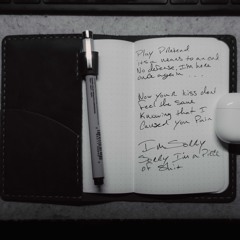 Play Pretend
its a means to an end
No defense, I'm here
once again....
Now your kiss don't
feel the same
Knowing that I
Caused you Pain
I'm Sorry
Sorry I'm a Piece
of Shit